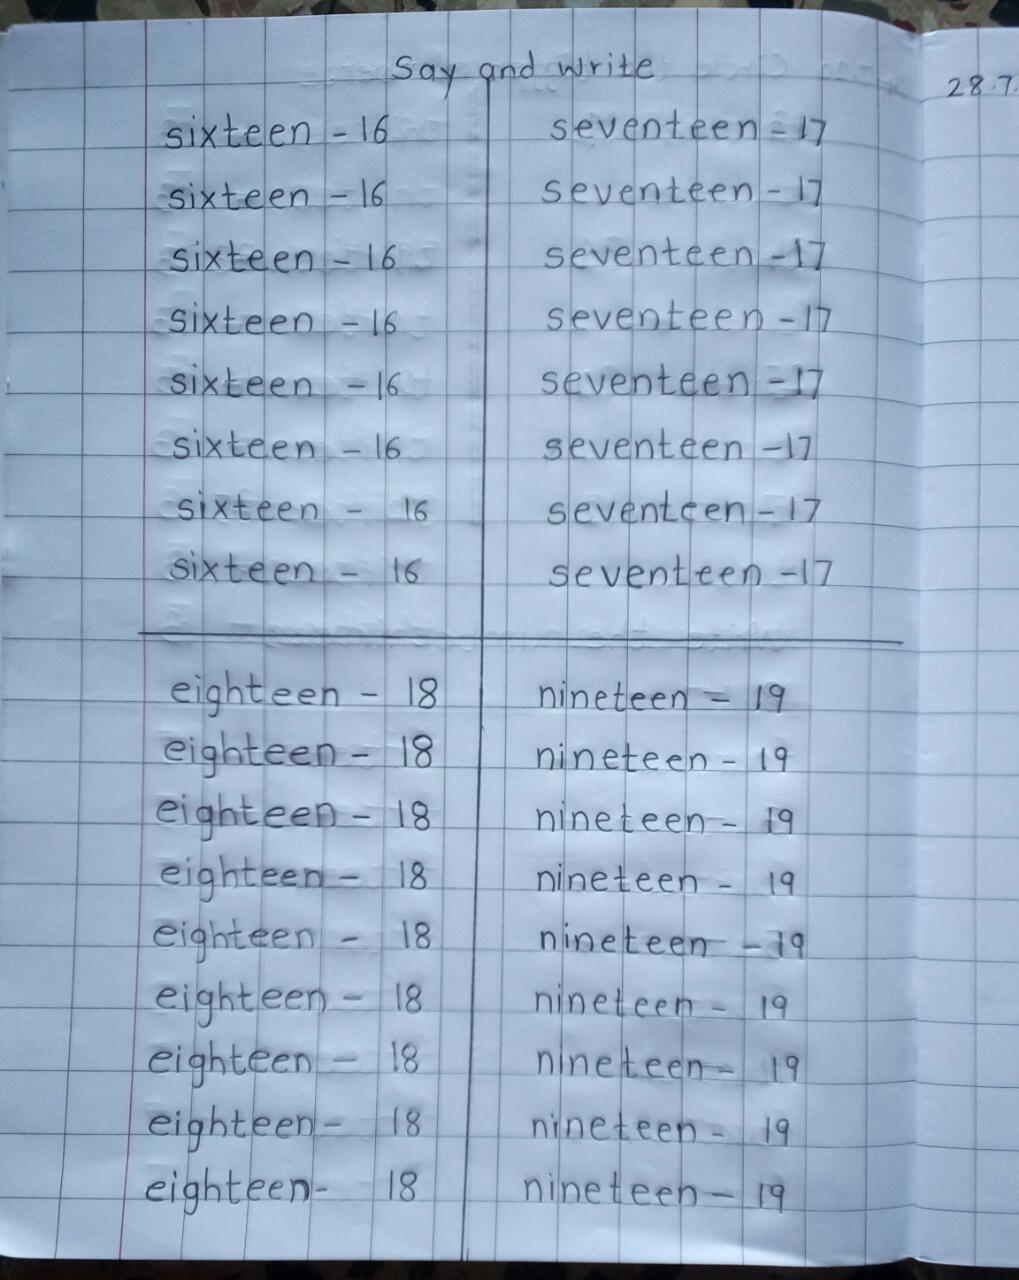 Say and write
28.7.
sixteen - 16 seventeen - 17
sixteen - 16 seventeen - 17
sixteen - 16 seventeen - 17
sixteen - 16 seventeen - 17
sixteen - 16 seventeen - 17
sixteen - 16 seventeen - 17
sixteen - 16 seventeen - 17
sixteen - 16 seventeen - 17
eighteen - 18 nineteen - 19
eighteen - 18 nineteen - 19
eighteen - 18 nineteen - 19
eighteen - 18 nineteen - 19
eighteen - 18 nineteen - 19
eighteen - 18 nineteen - 19
eighteen - 18 nineteen - 19
eighteen - 18 nineteen - 19
eighteen - 18 nineteen - 19